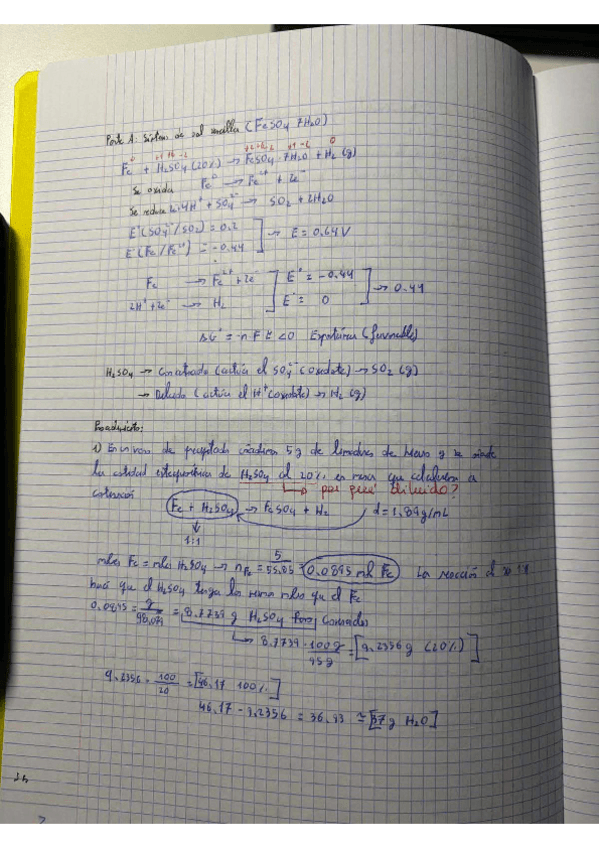 Parte A: Síntesis de sal sencilla (FeSO4 7H2O)
0 +1 +6 -2 +2 +6 -2 +1 -2 0
Fe + H2SO4 (20%) → FeSO4 · 7H2O + H2 (g)
Se oxida Fe⁰ → Fe²⁺ + 2e⁻
Se reduce 4H⁺ + SO4²⁻ → SO2 + 2H2O
E°(SO4²⁻/SO2) = 0.2
E°(Fe/Fe²⁺) = -0.44
→ E = 0.64 V
Fe → Fe²⁺ + 2e⁻ E° = -0.44
2H⁺ + 2e⁻ → H2 E° = 0
→ 0.44
ΔG° = -n F E < 0 Espontánea (favorable)
H2SO4 → Concentrado (actúa el SO4²⁻ (oxidante) → SO2 (g)
→ Diluido (actúa el H⁺ (oxidante) → H2 (g)
Procedimiento:
1) En un vaso de precipitado 5g de limaduras de hierro y se añade
la cantidad estequiométrica de H2SO4 al 20% en masa que calculamos a
→ por qué diluido?
continuación
Fe + H2SO4 → FeSO4 + H2 d = 1.84 g/mL
1:1
moles Fe = moles H2SO4 → nFe = 5/55.85 = 0.0895 mol Fe La reacción al 1:1
hace que el H2SO4 tenga los mismos moles que el Fe
0.0895 = g/98.079 = 8.7739 g H2SO4 puro
→ 8.7739 · 100g/95g = [9.2356 g (20%)]
9.2356 · 100/20 = [46.17 100%]
46.17 - 9.2356 = 36.93 ≅ [37g H2O]